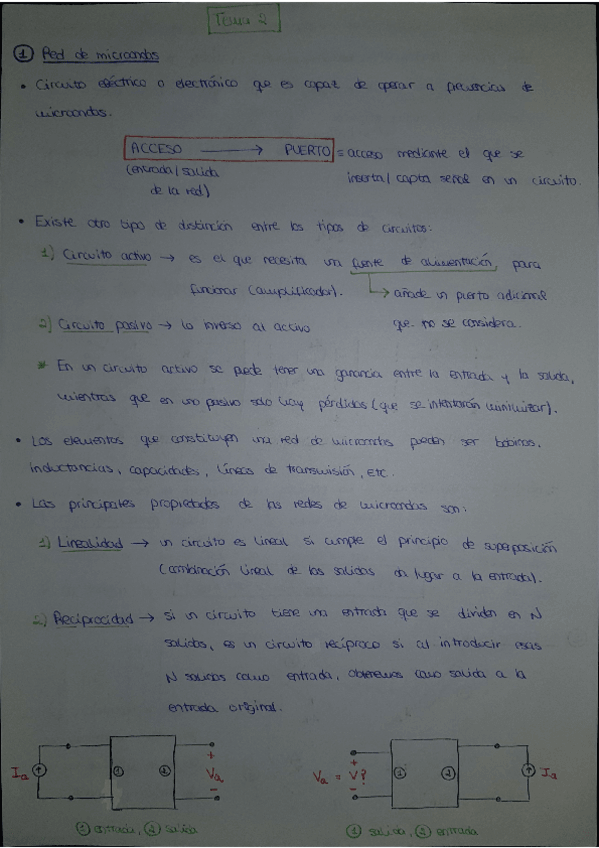 Tema 2
① Red de microondas
• Circuito eléctrico o electrónico que es capaz de operar a frecuencias de
microondas.
ACCESO → PUERTO = acceso mediante el que se
(entrada/salida inserta/capta señal en un circuito.
de la red)
• Existe otro tipo de distinción entre los tipos de circuitos:
1) Circuito activo → es el que necesita una fuente de alimentación, para
funcionar (amplificador). → añade un puerto adicional
2) Circuito pasivo → lo inverso al activo que no se considera.
* En un circuito activo se puede tener una ganancia entre la entrada y la salida,
mientras que en uno pasivo solo hay pérdidas (que se intentarán minimizar).
• Los elementos que constituyen una red de microondas pueden ser bobinas,
inductancias, capacidades, líneas de transmisión, etc.
• Las principales propiedades de las redes de microondas son:
1) Linealidad → un circuito es lineal si cumple el principio de superposición
(combinación lineal de las salidas da lugar a la entrada).
2) Reciprocidad → si un circuito tiene una entrada que se dividen en N
salidas, es un circuito recíproco si al introducir esas
N salidas como entrada, obtenemos como salida a la
entrada original.
+ +
Ia ① ② Va Va = V? ① ② Ia
- -
① entrada, ② salida ① salida, ② entrada